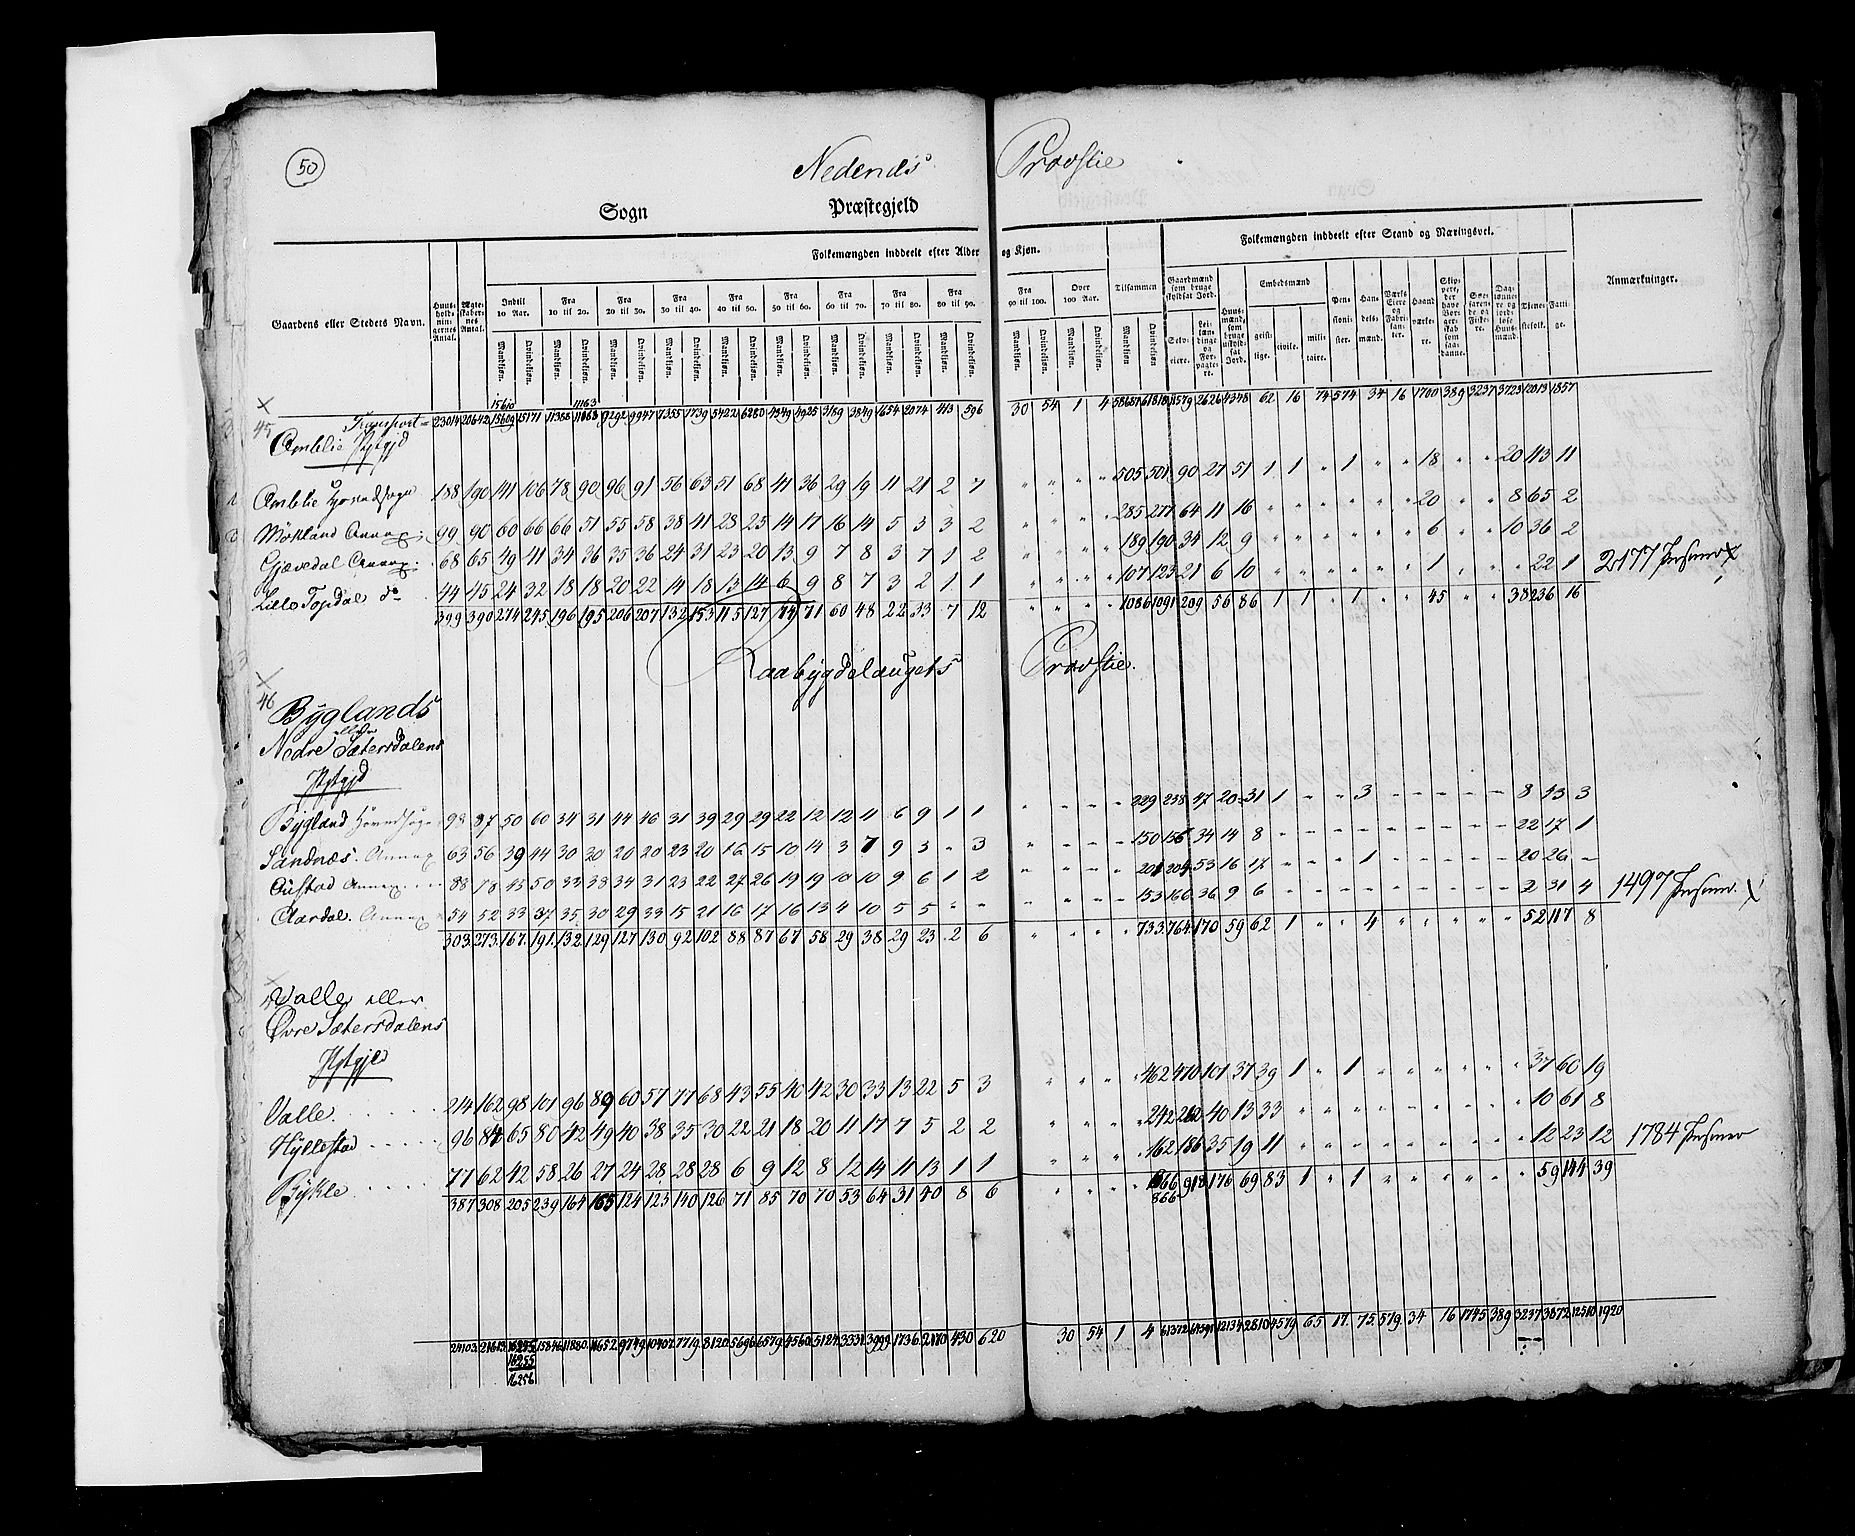 50
Nedenæs Provstie
Sogn Præstegjeld
Gaardens eller Stedets Navn. Huusholdningernes Antal. Ægteskabernes Antal. Folkemængden inddeelt efter Alder og Kjøn. Tilsammen Folkemængden inddeelt efter Stand og Næringsvei. Anmærkninger.
Indtil 10 Aar. Fra 10 til 20. Fra 20 til 30. Fra 30 til 40. Fra 40 til 50. Fra 50 til 60. Fra 60 til 70. Fra 70 til 80. Fra 80 til 90. Fra 90 til 100. Over 100 Aar.
Mandkjøn. Qvindekjøn. Mandkjøn. Qvindekjøn. Mandkjøn. Qvindekjøn. Mandkjøn. Qvindekjøn. Mandkjøn. Qvindekjøn. Mandkjøn. Qvindekjøn. Mandkjøn. Qvindekjøn. Mandkjøn. Qvindekjøn. Mandkjøn. Qvindekjøn. Mandkjøn. Qvindekjøn. Mandkjøn. Qvindekjøn. Mandkjøn Qvindekjøn
Gaardmænd som bruge skyldsat Jord. Selveiere. Leilændinge og Forpagtere. Huusmænd, som bruge uskyldsat Jord. Embedsmænd geistlige. civile. militaire. Pensionister. Handelsmænd. Værks Eiere og Fabrikanter. Haandværkere. Skippere, der have Borgerskab som saadanne. Søefarende og Fiskere. Daglønnere og jordløse Huusmænd. Tjenestefolk. Fattige.
15610 11163
Transport 23014 20642 15609 15171 11388 9292 9947 7355 7739 5422 6280 4349 4925 3189 3849 1654 2074 413 596 30 54 1 4 58687 61818 11579 2626 4348 62 16 74 574 34 16 1700 389 3237 3723 12013 1857
45
Amblie Pstgjd
Amblie Hovedsogn 188 190 141 106 78 90 96 91 56 63 51 68 41 36 29 19 11 21 2 7 505 501 90 27 51 1 1 " 1 " " 18 " " 20 113 11
Mökland Annex: 99 90 60 66 66 51 55 58 38 41 28 25 14 17 16 14 5 3 3 2 285 277 64 11 16 20 8 65 2
Gjævedal Annex: 68 65 49 41 34 36 35 36 24 31 23 20 13 9 7 8 3 7 1 2 189 190 34 12 9 6 10 36 2
Lille Topdal do 44 45 24 32 18 18 20 22 14 18 13 14 6 9 8 7 3 2 1 1 107 123 21 6 10 1 22 1 2177 Personer X
399 390 274 245 196 195 206 207 132 153 115 127 74 71 60 48 22 33 7 12 1086 1091 209 56 86 1 1 " 1 " " 45 " " 38 236 16
Raabygdelaugets Provstie.
46
Byglands
eller
Nedre Sætersdalens
Pstgjd
Bygland Hovedsogn 98 87 50 60 34 31 44 46 31 39 29 29 22 12 12 11 6 9 1 1 229 238 47 20 31 1 " " 3 8 43 3
Sandnæs. Annex 63 56 39 44 30 30 20 20 23 20 16 15 10 14 3 7 9 3 " 3 150 156 34 14 8 22 17 1
Austad Annex 88 78 45 50 33 38 34 31 23 22 27 26 19 19 10 10 9 6 1 2 201 204 53 16 17 1 20 26 -
Aardal. Annex 54 52 33 37 35 30 29 33 15 21 16 17 16 13 4 10 5 5 " " 153 166 36 9 6 2 31 4 1497 Personer. X
303 273 167 191 132 129 127 130 92 102 88 87 67 58 29 38 29 23 2 6 733 764 170 59 62 1 " " 4 52 117 8
Valle eller
Øvre Sætersdalens
Pstgjld
Valle. 214 162 98 101 96 89 60 57 77 68 43 55 40 42 30 33 13 22 5 3 462 470 101 37 39 1 " 1 37 60 19
Hyllestad 96 84 65 80 42 49 40 38 35 30 22 21 18 20 11 17 7 5 2 2 242 262 40 13 33 10 61 8
Bykle 77 62 42 58 26 27 24 28 28 28 6 9 12 8 12 14 11 13 1 1 162 186 35 19 11 12 23 12 1784 Personer
387 308 205 239 164 165 124 123 140 126 71 85 70 70 53 64 31 40 8 6 866 918 176 69 83 1 " 1 59 144 39
866
24103 21613 16255 15846 11880 11652 9749 10407 7719 8120 5696 6579 4560 5124 3331 3999 1736 2170 430 620 30 54 1 4 61372 64591 12134 2810 4579 65 17 75 579 34 16 1745 389 3237 3872 12510 1920
16255
16256